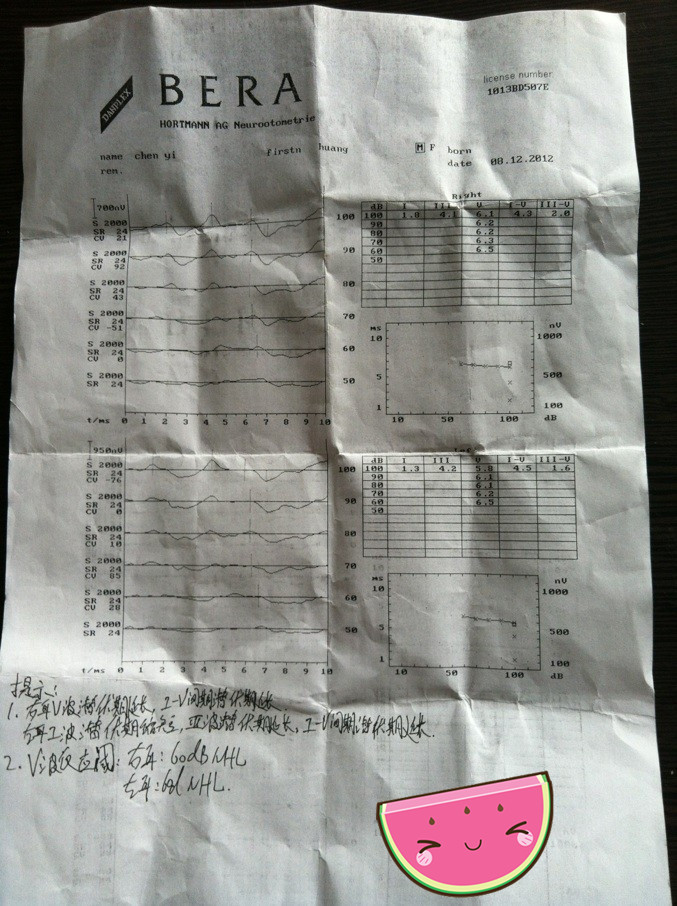 DANPLEX
BERA
HORTMANN AG Neurootometrie
license number
1013BD507E
name chen yi firstn huang M F born
ren. date 08.12.2012
Right
700nV
S 2000
SR 24
CV 21
S 2000
SR 24
CV 92
S 2000
SR 24
CV 43
S 2000
SR 24
CV -51
S 2000
SR 24
CV 0
S 2000
SR 24
100
90
80
70
60
50
t/ms 0 1 2 3 4 5 6 7 8 9 10
dB I III V I-V III-V
100 1.8 4.1 6.1 4.3 2.0
90 6.2
80 6.2
70 6.3
60 6.5
50
ms nV
10 1000
5 500
1 100
10 100 dB
950nV
S 2000
SR 24
CV -76
S 2000
SR 24
CV 0
S 2000
SR 24
CV 10
S 2000
SR 24
CV 85
S 2000
SR 24
CV 28
S 2000
SR 24
100
90
80
70
60
50
t/ms 0 1 2 3 4 5 6 7 8 9 10
dB I III V I-V III-V
100 1.3 4.2 5.8 4.5 1.6
90 6.1
80 6.1
70 6.2
60 6.5
50
ms nV
10 1000
5 500
1 100
10 100 dB
提示:
1. 右耳V波潜伏期延长, I-V间期潜伏期延长.
左耳I波潜伏期缩短, III波潜伏期延长, I-V间期潜伏期延长.
2. V波反应阈: 右耳: 60db NHL
左耳: NHL.